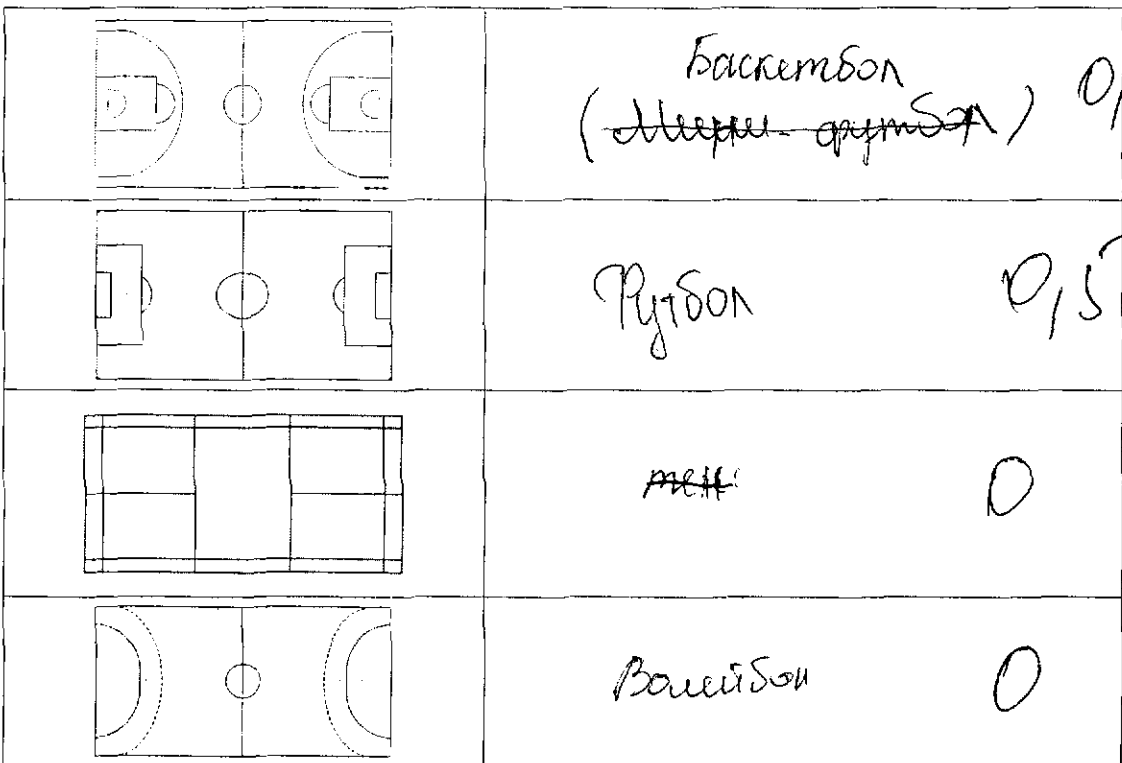 Баскетбол 0,
(Мини-футбол)
Футбол 0,5
тен 0
Волейбол 0